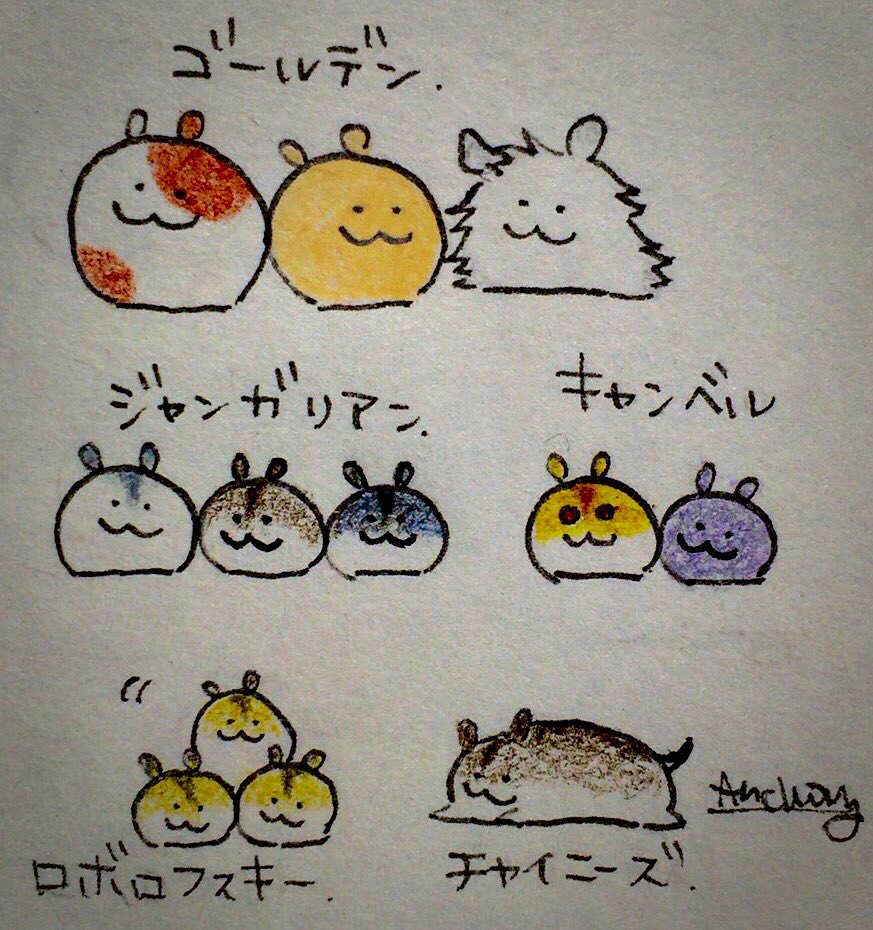 ゴールデン.
ジャンガリアン.
キャンベル
ロボロフスキー.
チャイニーズ.